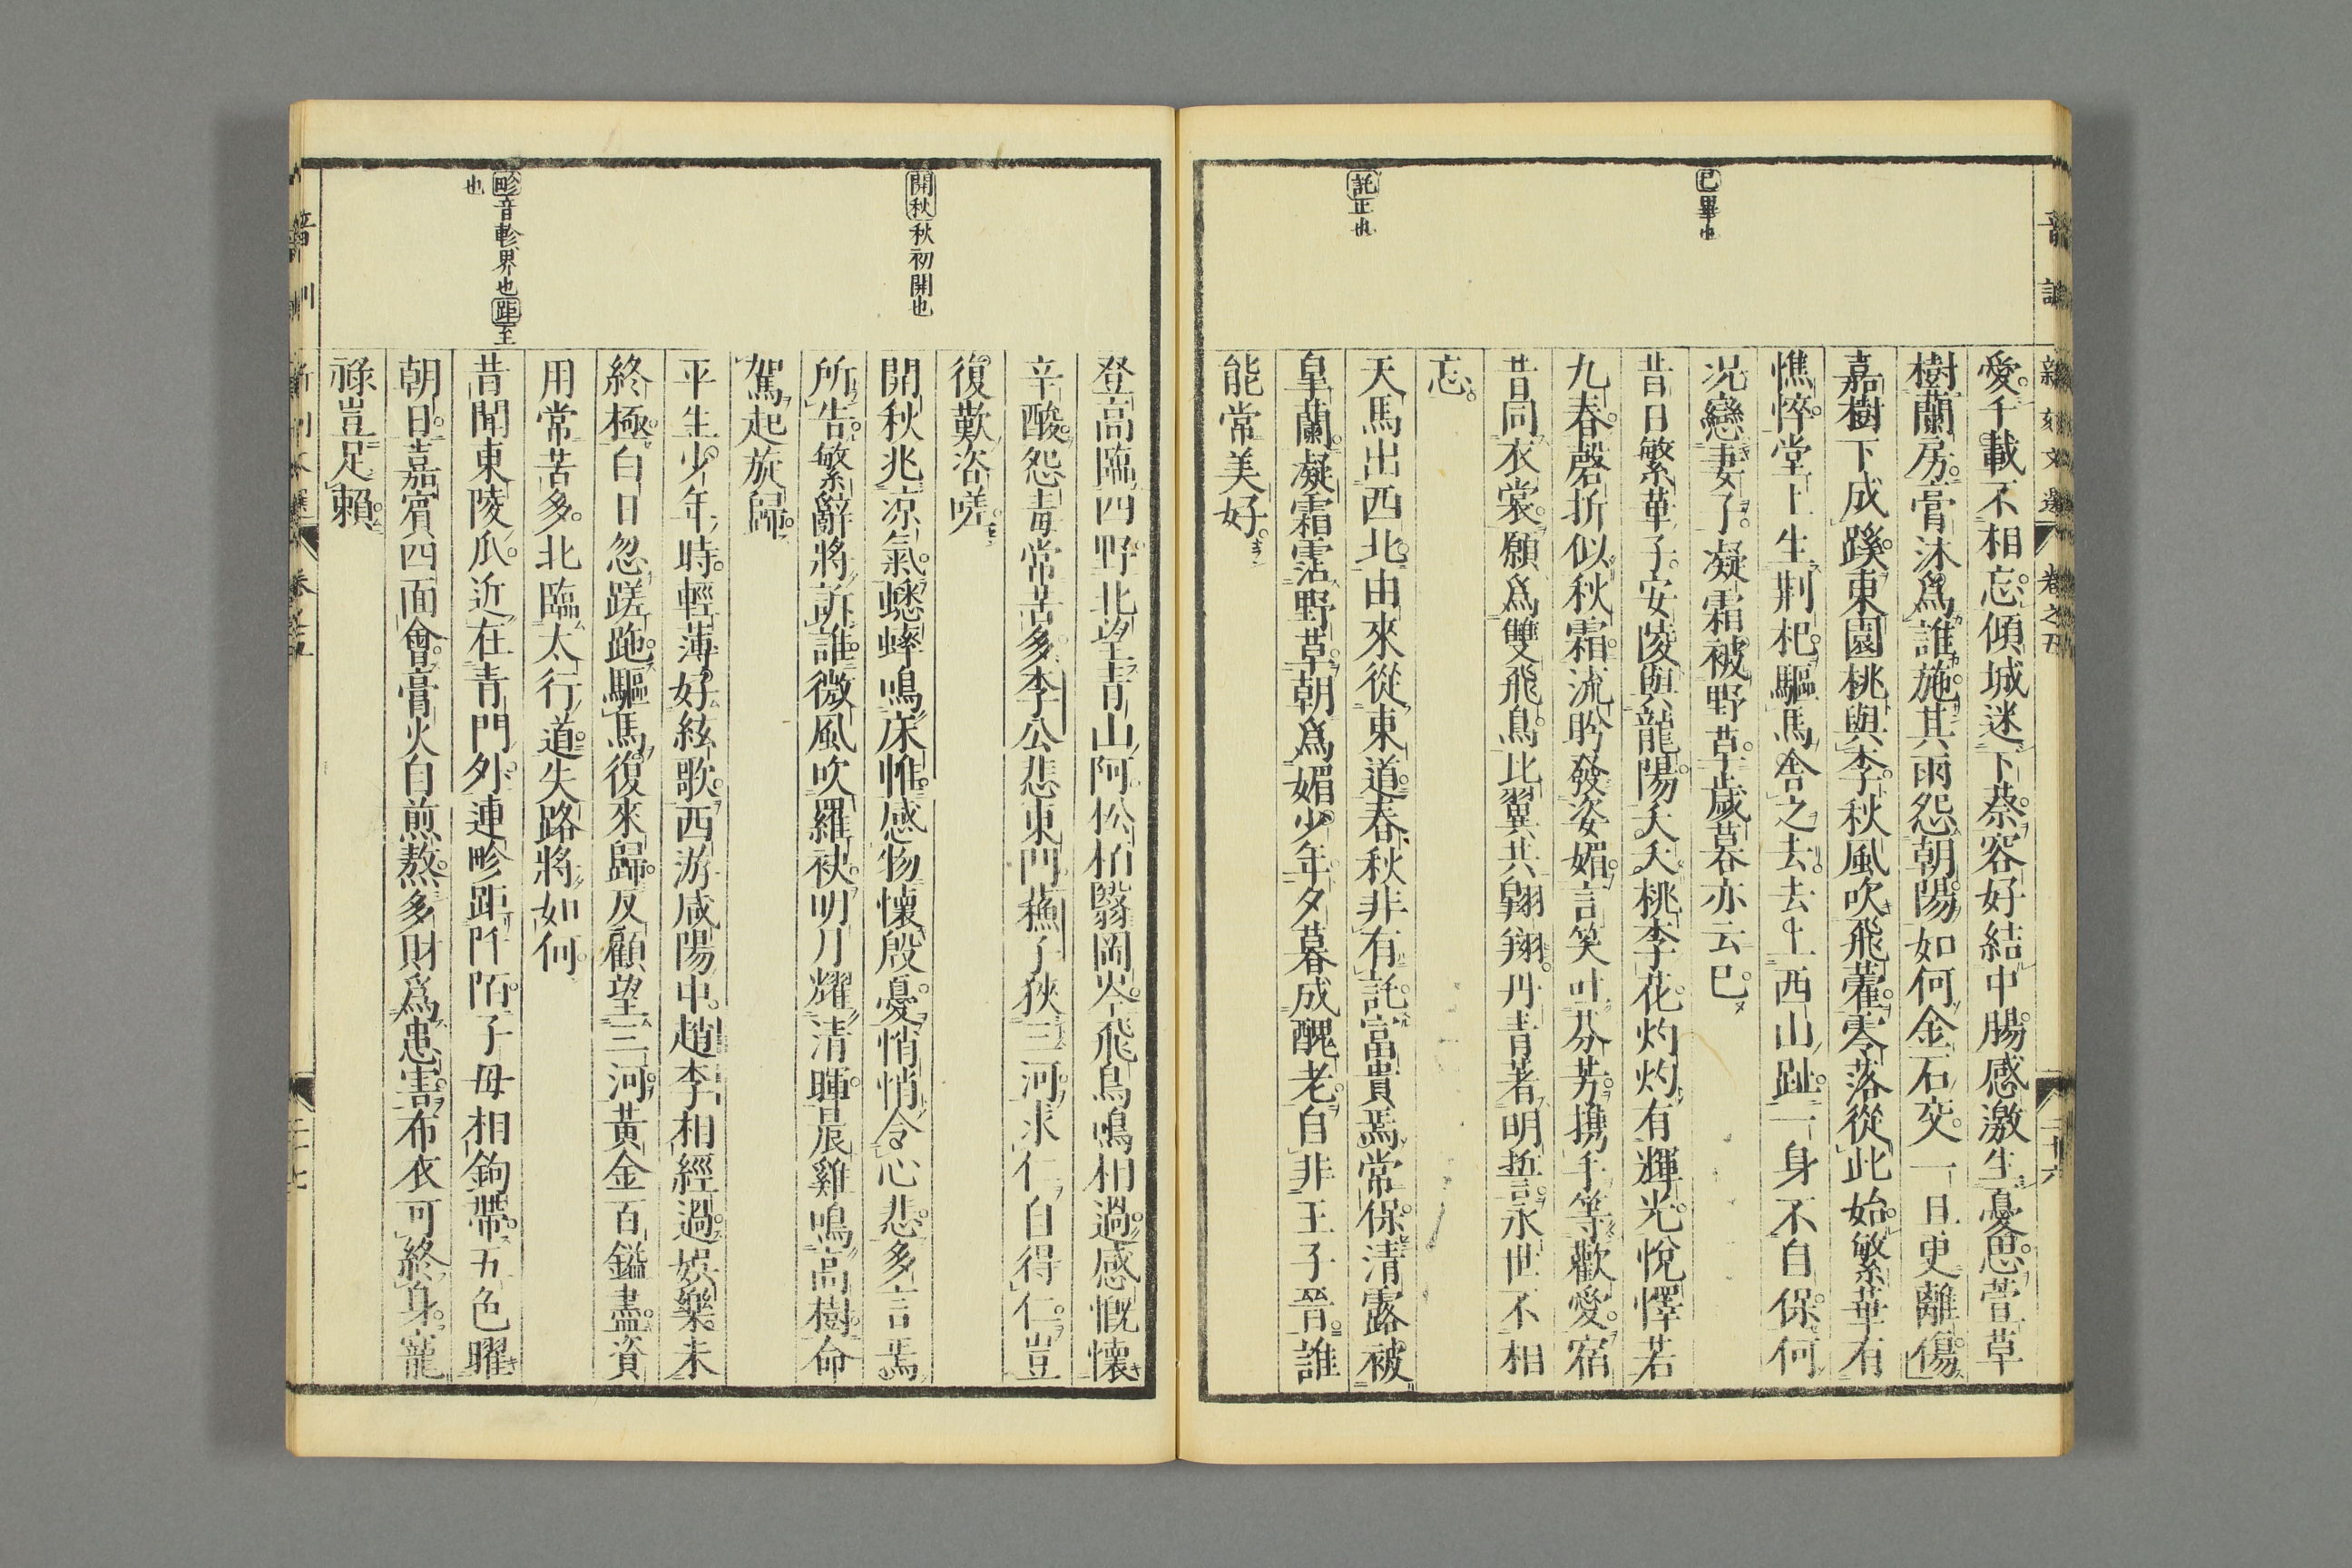 音訓
新刻文選
卷之五
三十六
已畢也
託正也
愛千載不相忘傾城迷下蔡容好結中腸感激生憂思萱草
樹蘭房膏沐爲誰施其雨怨朝陽如何金石交一旦更離傷
嘉樹下成蹊東園桃與李秋風吹飛藿零落從此始繁華有
憔悴堂上生荆杞驅馬舎之去去上西山趾一身不自保何
况戀妻子凝霜被野草歲暮亦云已
昔日繁華子安陵與龍陽夭夭桃李花灼灼有輝光悅懌若
九春磬折似秋霜流盻發姿媚言笑吐芬芳携手等歡愛宿
昔同衣裳願爲雙飛鳥比翼共翺翔丹青著明誓永世不相
忘
天馬出西北由來從東道春秋非有託富貴焉常保清露被
皐蘭凝霜霑野草朝爲媚少年夕暮成醜老自非王子晉誰
能常美好
開秋秋初開也
畛音軫界也距至
也
登高臨四野北望青山阿松柏翳岡岑飛鳥鳴相過感慨懷
辛酸怨毒常苦多李公悲東門蘇子狹三河求仁自得仁豈
復歎咨嗟
開秋兆凉氣蟋蟀鳴床帷感物懷殷憂悄悄令心悲多言焉
所告繁辭將訴誰微風吹羅袂明月耀清暉晨雞鳴高樹命
駕起旋歸
平生少年時輕薄好絃歌西游咸陽中趙李相經過娛樂未
終極白日忽蹉跎驅馬復來歸反顧望三河黃金百鎰盡資
用常苦多北臨太行道失路將如何
昔聞東陵瓜近在青門外連畛距阡陌子母相鉤帶五色曜
朝日嘉賓四面會膏火自煎熬多財爲患害布衣可終身寵
祿豈足賴
音訓
卷之五